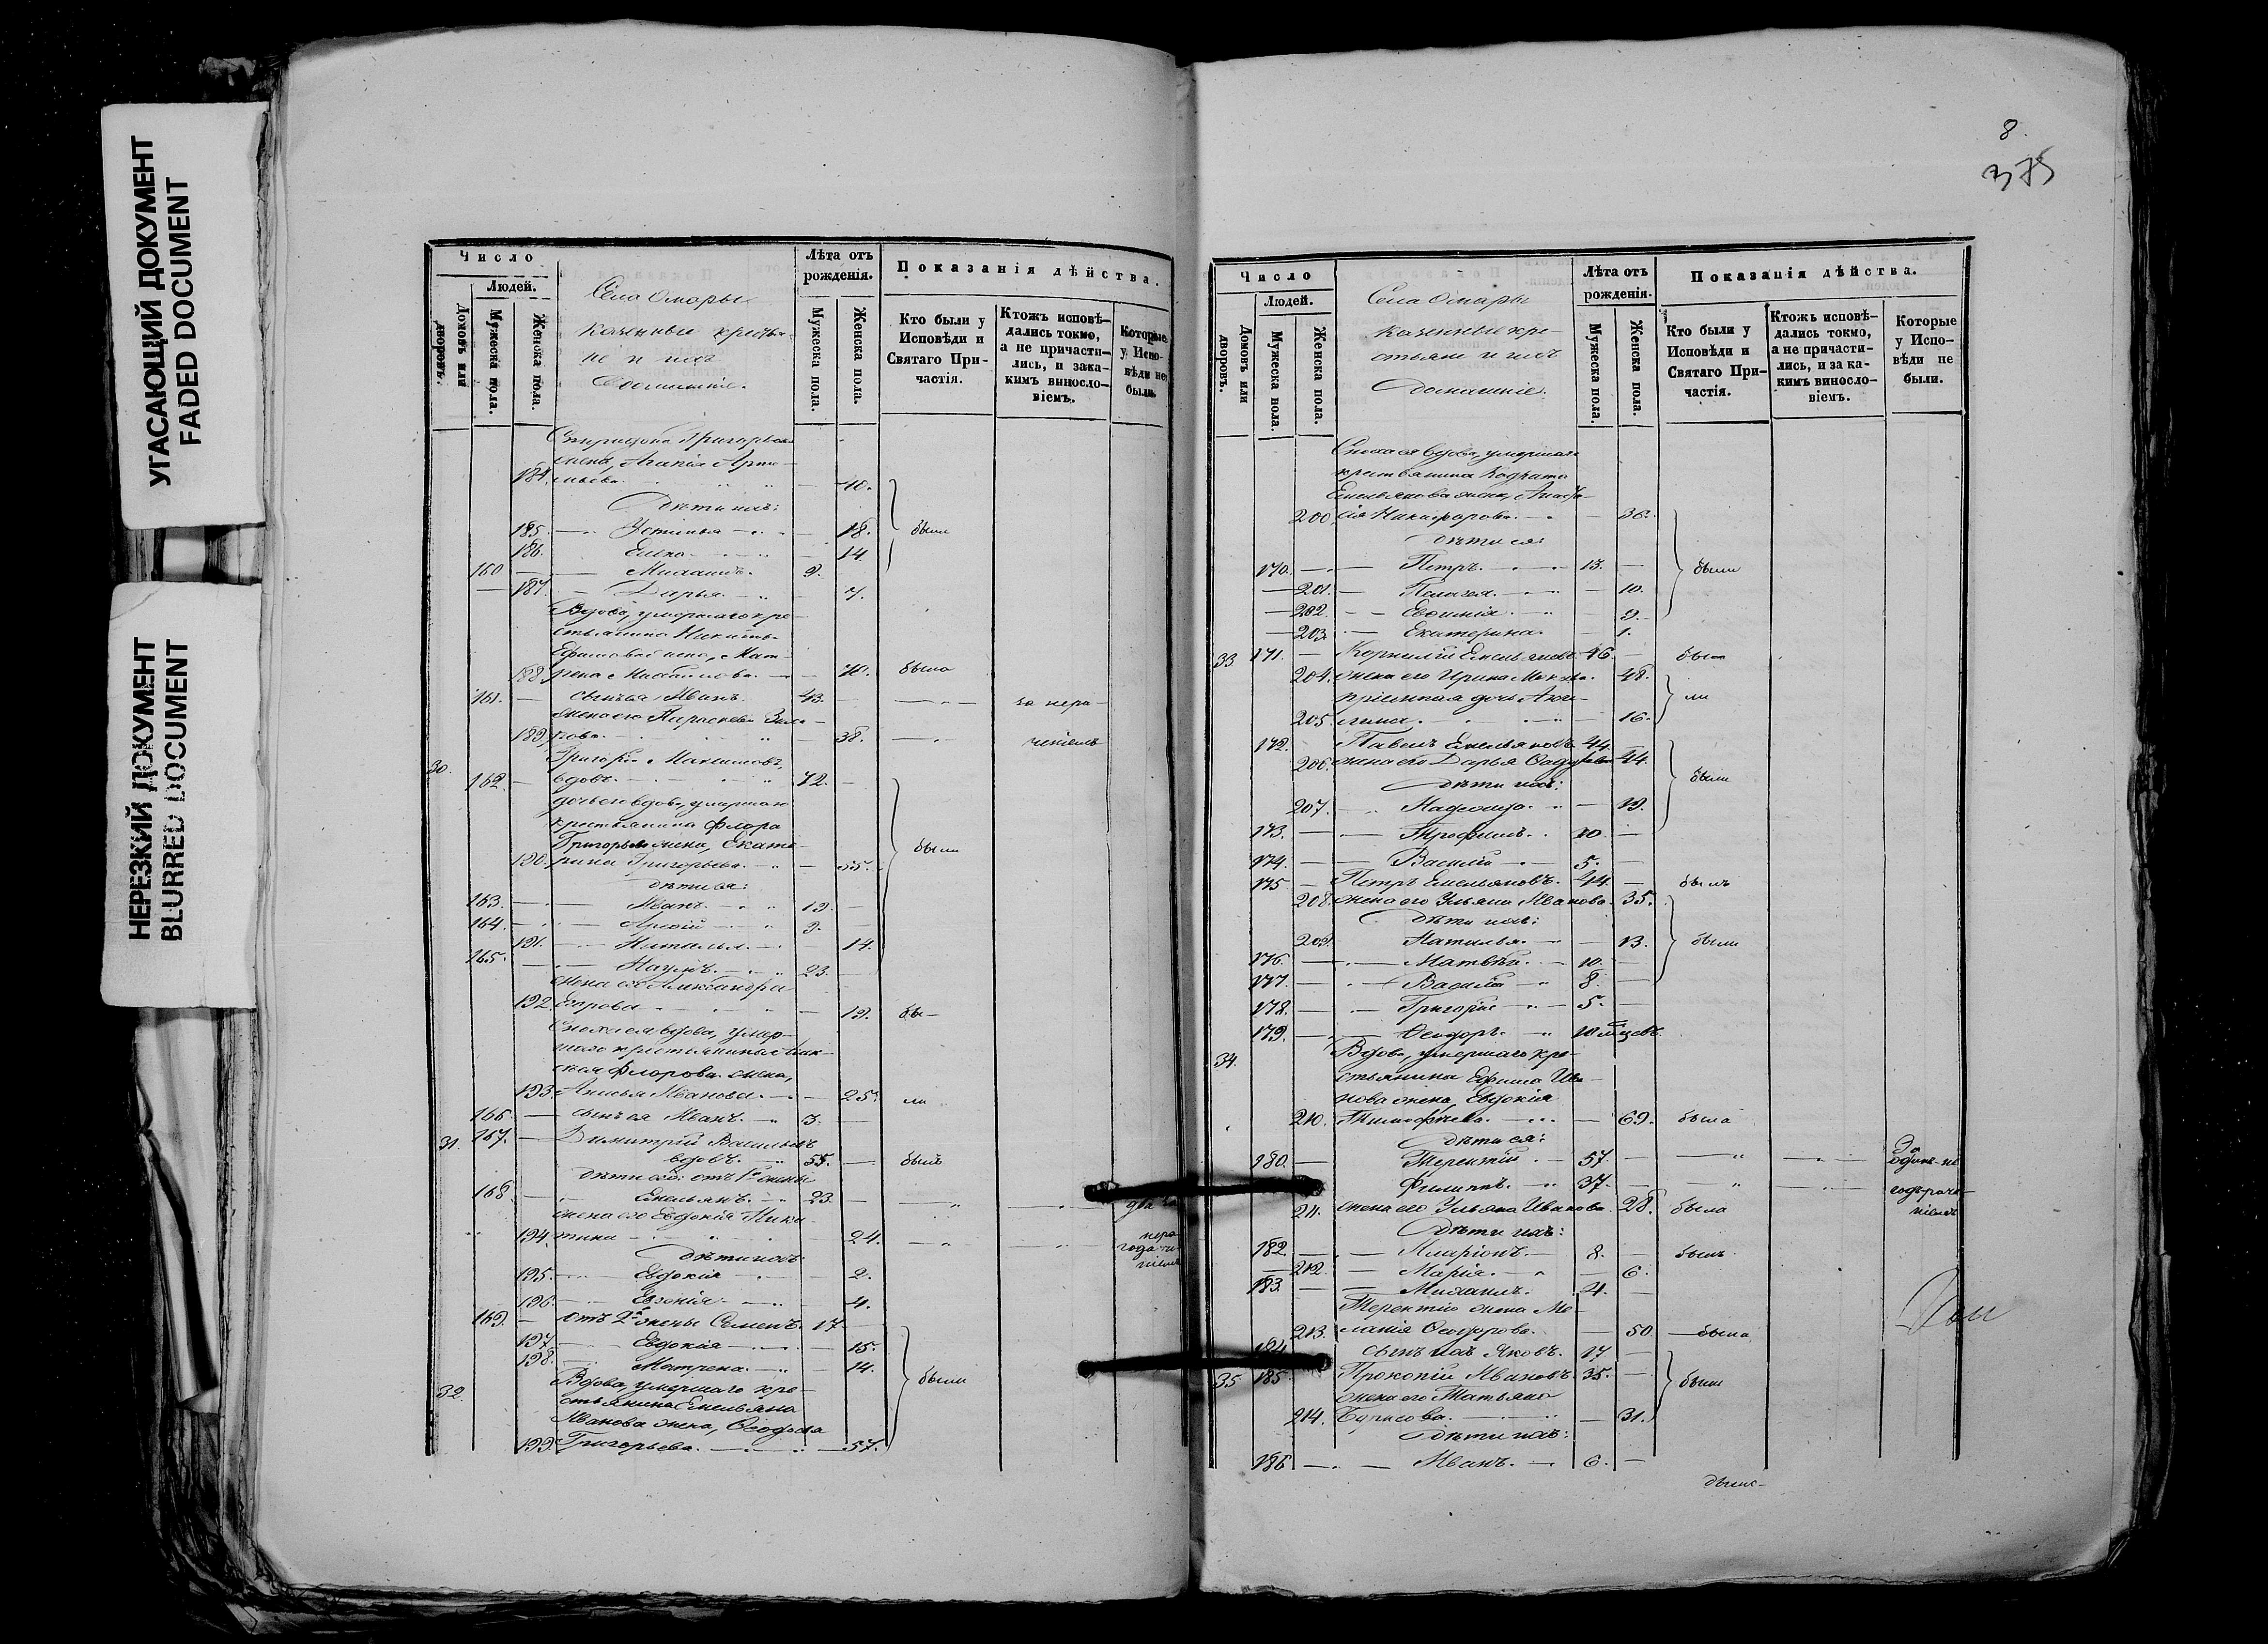 УГАСАЮЩИЙ ДОКУМЕНТ
FADED DOCUMENT
НЕРЕЗКИЙ ДОКУМЕНТ
BLURRED DOCUMENT
Число
Людей.
Домовъ или дворовъ.
Мужеска пола.
Женска пола.
Села Омары
казенные крестья-
не и ихъ
домашніе.
Лѣта отъ рожденія.
Мужеска пола.
Женска пола.
Показанія дѣйства.
Кто были у Исповѣди и Святаго При-частія.
Ктожъ исповѣ-дались токмо, а не причасти-лись, и за ка-кимъ винослo-віемъ.
Которые у Испо-вѣди не были.
Спиридона Григорьева
жена, Агапія Арте-
184. мьева 40.
Дѣти ихъ:
185. Устинья 18. были
186. Елена 14
160 Михаилъ 9.
187. Дарья 7.
Вдова, умершаго кре-
стьянина Никиты
Ефимова жена, Мат-
188. рена Михайлова 70. была
161. сынъ ея Иванъ 43. за нера-
жена его Параскева Заха-
189. рова 38. ченіемъ
30. Григорій Максимовъ,
162. вдовъ 72.
дочь его вдова, умершаго
крестьянина Флора
Григорьева жена, Екате-
190. рина Григорьева 55. были
дѣти ея:
163. Иванъ 19.
164. 9.
191. Наталья 14.
165. Наумъ 23.
жена его Александра
192. Егорова 19. бы-
Сноха ея вдова, умер-
шаго крестьянина
Флорова жена,
193. Анисья Иванова 25. ли
166. сынъ ея Иванъ 3.
31. 167. Димитрій Васильевъ
вдовъ 55. былъ
дѣти его: отъ 1й жены
168. Емельянъ 23. два
жена его Евдокія Ники-
194. тина 24. нера
Дѣти ихъ:
195. Евдокія 2.
196. 4.
169. отъ 2й жены Семенъ 17
197 Евдокія 15.
198. Матрена 14.
32. Вдова, умершаго кре-
стьянина Емельяна были
Иванова жена, Ѳеодосья
199. Григорьева 57.
8.
375
Число
Людей.
Домовъ или дворовъ.
Мужеска пола.
Женска пола.
Села Омары
казенные кре-
стьяне и ихъ
домашніе.
Лѣта отъ рожденія.
Мужеска пола.
Женска пола.
Показанія дѣйства.
Кто были у Исповѣди и Святаго При-частія.
Ктожъ исповѣ-дались токмо, а не причасти-лись, и за ка-кимъ винослo-віемъ.
Которые у Испо-вѣди не были.
Сноха ея вдова, умершаго
крестьянина Кодрата
Емельянова жена, Анаста-
200. сія Никифорова 36.
дѣти ея:
170. Петръ 13. были
201. Пелагея 10.
202. Евѳимія 9.
203. Екатерина 1.
33. 171. Корнилій Емельяновъ 46. бы-
204. жена его Ирина 48.
пріемная дочь Анге- ли
205. лина 16.
172. Павелъ Емельяновъ 44.
206. жена его Дарья 44.
Дѣти ихъ: были
207. Надежда 19.
173. Трофимъ 10
174. Василій 5.
175 Петръ Емельяновъ 44. былъ
208. жена его Ульяна Иванова 35.
Дѣти ихъ:
209. Наталья 13. были
176. Матвѣй 10.
177. Василій 8.
178. Григорій 5.
179. Ѳеодоръ 10 мѣсяцевъ
34. Вдова, умершаго кре-
стьянина Ефима Ива-
нова жена Евдокія
210. Тимофѣева 69. была
Дѣти ея: За
180. Терентій 57 одинъ не
Филиппъ 37.
211. жена его Ульяна Иванова 28. была
Дѣти ихъ:
182. Иларіонъ 8. былъ
212. Марія 6.
183. Михаилъ 4.
Терентія жена Ме-
213. ланія Ѳеодорова 50. была
184 сынъ ихъ Яковъ 17
35 185. Прокопій Ивановъ 35. были
жена его Татьяна
214. Борисова 31.
Дѣти ихъ:
186 Иванъ 6.